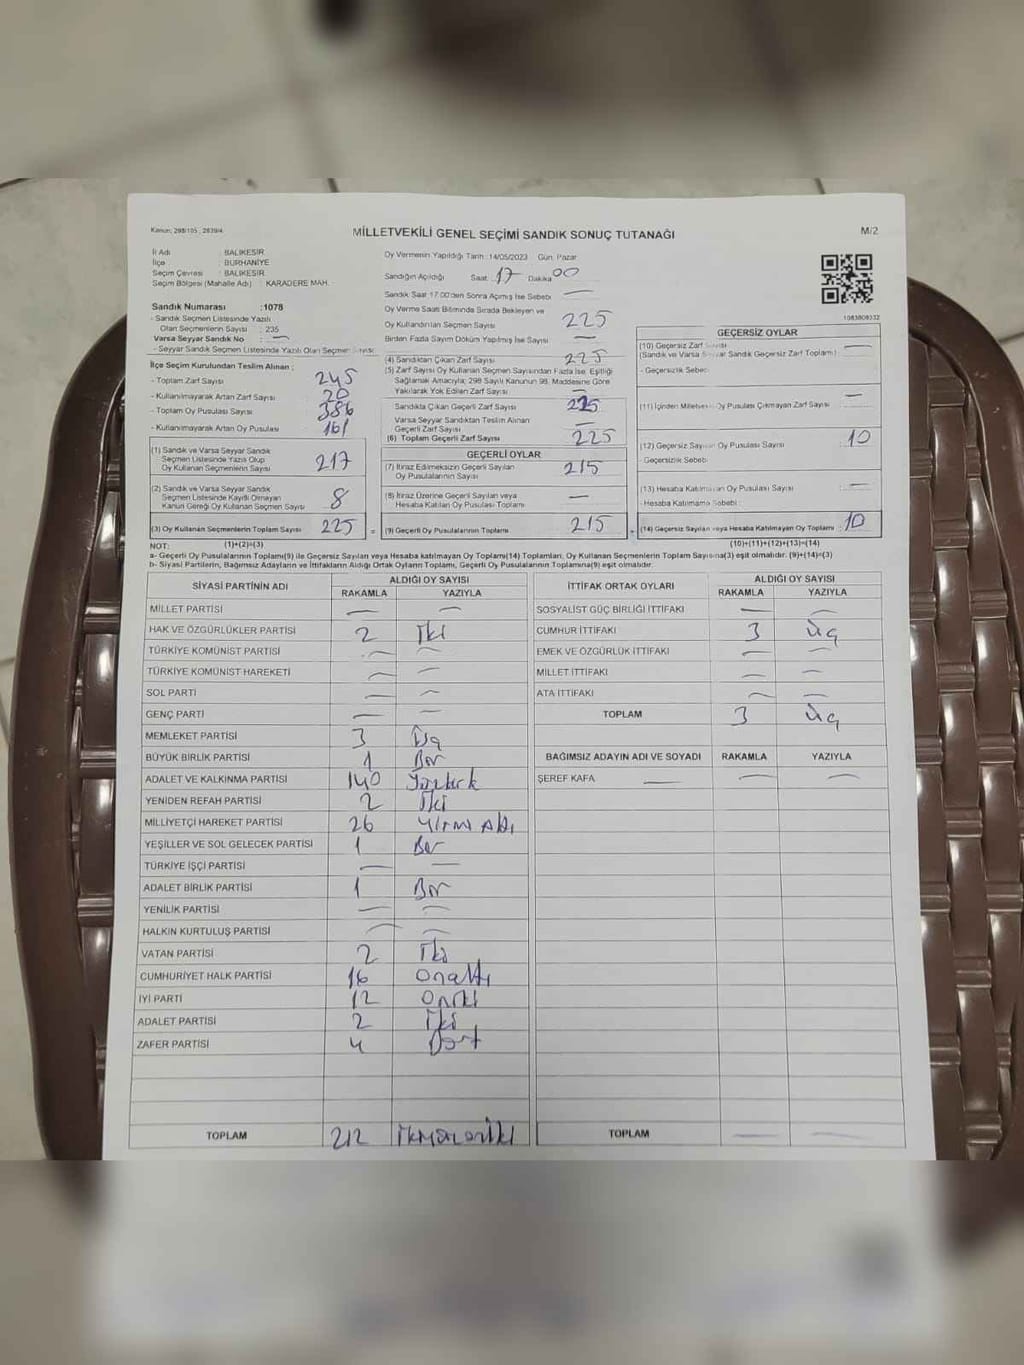 Kanun; 298/105 , 2839/4
MİLLETVEKİLİ GENEL SEÇİMİ SANDIK SONUÇ TUTANAĞI
M/2
İl Adı : BALIKESİR
İlçe : BURHANİYE
Seçim Çevresi : BALIKESİR
Seçim Bölgesi (Mahalle Adı) : KARADERE MAH.
Sandık Numarası :1078
- Sandık Seçmen Listesinde Yazılı
Olan Seçmenlerin Sayısı : 235
Varsa Seyyar Sandık No : —
- Seyyar Sandık Seçmen Listesinde Yazılı Olan Seçmen Sayısı:
İlçe Seçim Kurulundan Teslim Alınan ;
- Toplam Zarf Sayısı 245
- Kullanılmayarak Artan Zarf Sayısı 20
- Toplam Oy Pusulası Sayısı 386
- Kullanılmayarak Artan Oy Pusulası 161
(1) Sandık ve Varsa Seyyar Sandık
Seçmen Listesinde Yazılı Olup
Oy Kullanan Seçmenlerin Sayısı 217
(2) Sandık ve Varsa Seyyar Sandık
Seçmen Listesinde Kayıtlı Olmayan
Kanun Gereği Oy Kullanan Seçmen Sayısı 8
(3) Oy Kullanan Seçmenlerin Toplam Sayısı 225
(1)+(2)=(3)
Oy Vermenin Yapıldığı Tarih :14/05/2023 Gün: Pazar
Sandığın Açıldığı Saat: 17 Dakika 00
Sandık Saat 17:00'den Sonra Açılmış İse Sebebi —
Oy Verme Saati Bitiminde Sırada Bekleyen ve
Oy Kullandırılan Seçmen Sayısı 225
Birden Fazla Sayım Döküm Yapılmış İse Sayısı —
(4) Sandıktan Çıkan Zarf Sayısı 225
(5) Zarf Sayısı Oy Kullanan Seçmen Sayısından Fazla İse, Eşitliği
Sağlamak Amacıyla; 298 Sayılı Kanunun 98. Maddesine Göre
Yakılarak Yok Edilen Zarf Sayısı —
Sandıkta Çıkan Geçerli Zarf Sayısı 225
Varsa Seyyar Sandıktan Teslim Alınan
Geçerli Zarf Sayısı —
(6) Toplam Geçerli Zarf Sayısı 225
GEÇERLİ OYLAR
(7) İtiraz Edilmeksizin Geçerli Sayılan
Oy Pusulalarının Sayısı 215
(8) İtiraz Üzerine Geçerli Sayılan veya
Hesaba Katılan Oy Pusulası Toplamı —
= (9) Geçerli Oy Pusulalarının Toplamı 215
1083808332
GEÇERSİZ OYLAR
(10) Geçersiz Zarf Sayısı —
(Sandık ve Varsa Seyyar Sandık Geçersiz Zarf Toplamı)
- Geçersizlik Sebebi
(11) İçinden Milletvekili Oy Pusulası Çıkmayan Zarf Sayısı —
(12) Geçersiz Sayılan Oy Pusulası Sayısı : 10
- Geçersizlik Sebebi
(13) Hesaba Katılmayan Oy Pusulası Sayısı —
- Hesaba Katılmama Sebebi
+ (14) Geçersiz Sayılan veya Hesaba Katılmayan Oy Toplamı : 10
(10)+(11)+(12)+(13)=(14)
NOT:
a- Geçerli Oy Pusulalarının Toplamı(9) ile Geçersiz Sayılan veya Hesaba katılmayan Oy Toplamı(14) Toplamları, Oy Kullanan Seçmenlerin Toplam Sayısına(3) eşit olmalıdır. (9)+(14)=(3)
b- Siyasi Partilerin, Bağımsız Adayların ve İttifakların Aldığı Ortak Oyların Toplamı, Geçerli Oy Pusulalarının Toplamına(9) eşit olmalıdır.
SİYASİ PARTİNİN ADI ALDIĞI OY SAYISI
RAKAMLA YAZIYLA
MİLLET PARTİSİ — —
HAK VE ÖZGÜRLÜKLER PARTİSİ 2 İki
TÜRKİYE KOMÜNİST PARTİSİ — —
TÜRKİYE KOMÜNİST HAREKETİ — —
SOL PARTİ — —
GENÇ PARTİ — —
MEMLEKET PARTİSİ 3 Üç
BÜYÜK BİRLİK PARTİSİ 1 Bir
ADALET VE KALKINMA PARTİSİ 140 Yüzkırk
YENİDEN REFAH PARTİSİ 2 İki
MİLLİYETÇİ HAREKET PARTİSİ 26 Yirmi Altı
YEŞİLLER VE SOL GELECEK PARTİSİ 1 Bir
TÜRKİYE İŞÇİ PARTİSİ — —
ADALET BİRLİK PARTİSİ 1 Bir
YENİLİK PARTİSİ — —
HALKIN KURTULUŞ PARTİSİ — —
VATAN PARTİSİ 2 İki
CUMHURİYET HALK PARTİSİ 16 Onaltı
İYİ PARTİ 12 Oniki
ADALET PARTİSİ 2 İki
ZAFER PARTİSİ 4 Dört
TOPLAM 212 İkiyüzoniki
İTTİFAK ORTAK OYLARI ALDIĞI OY SAYISI
RAKAMLA YAZIYLA
SOSYALİST GÜÇ BİRLİĞİ İTTİFAKI — —
CUMHUR İTTİFAKI 3 Üç
EMEK VE ÖZGÜRLÜK İTTİFAKI — —
MİLLET İTTİFAKI — —
ATA İTTİFAKI — —
TOPLAM 3 Üç
BAĞIMSIZ ADAYIN ADI VE SOYADI RAKAMLA YAZIYLA
ŞEREF KAFA — — —
TOPLAM — —